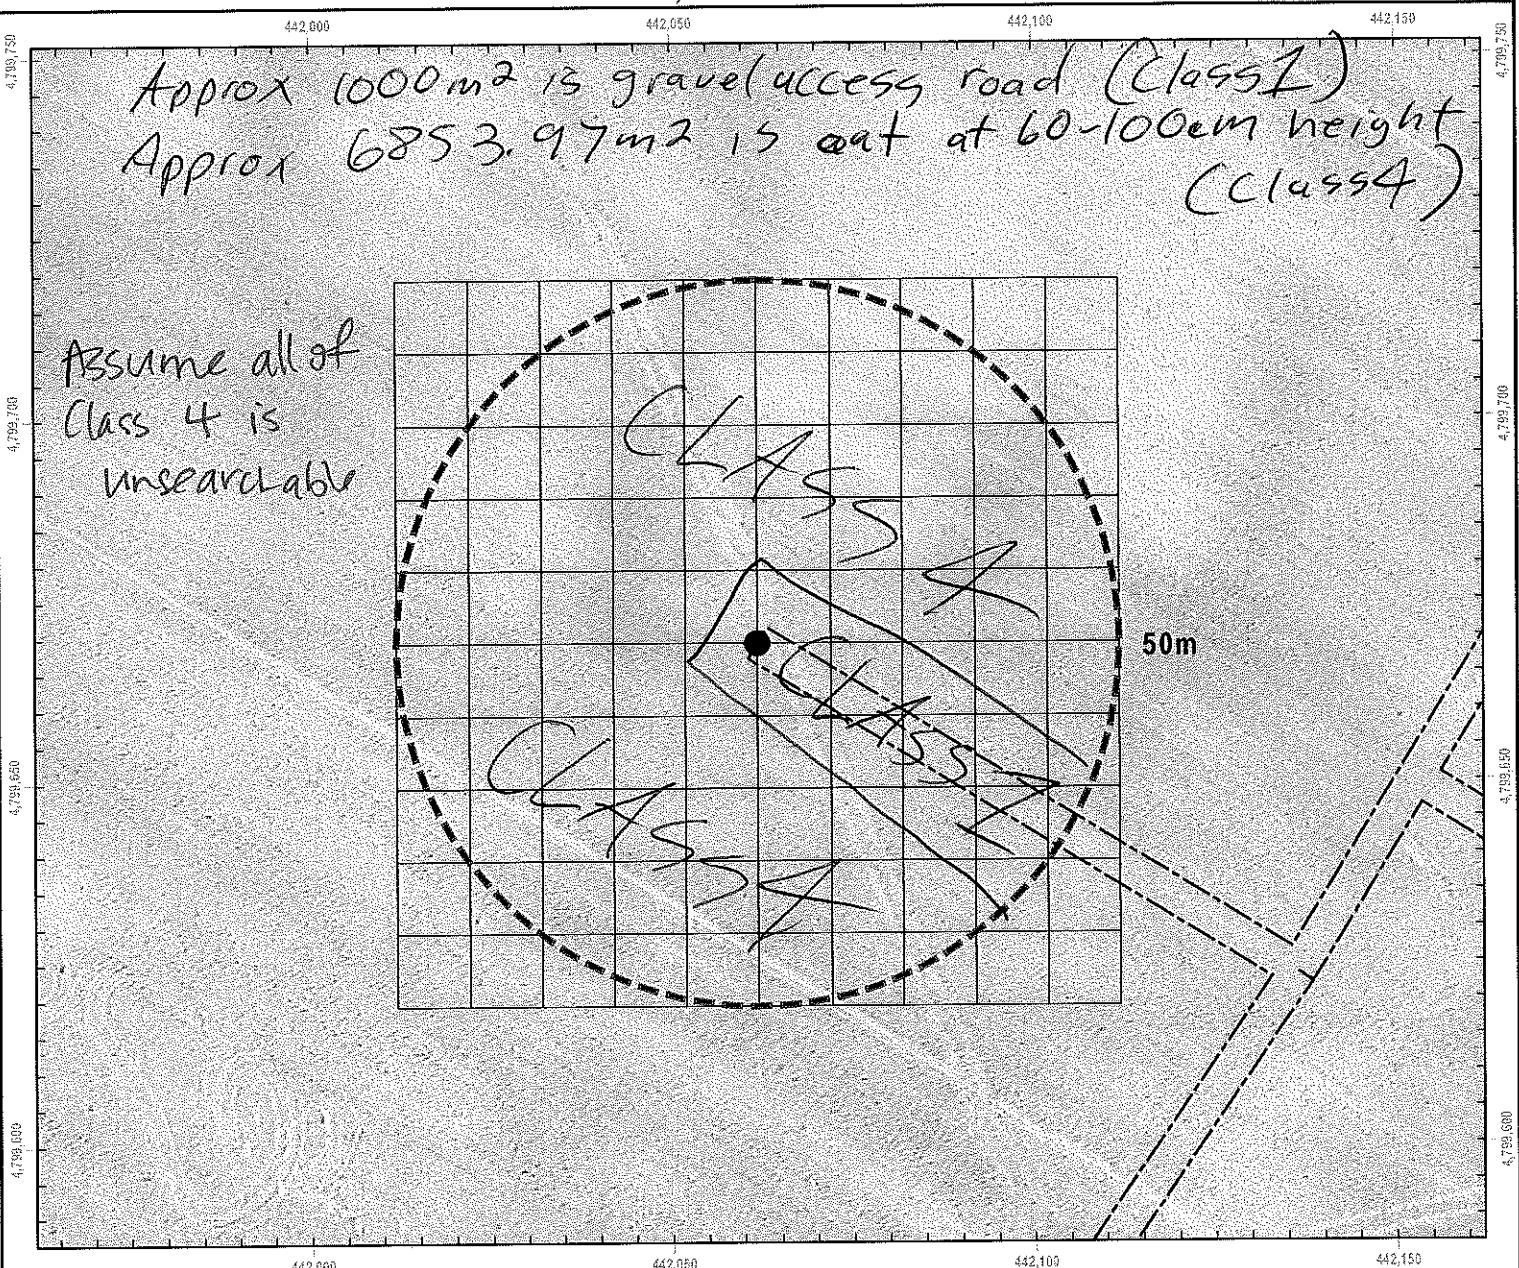 442,000 442,050 442,100 442,150
4,799,750 4,799,750
Approx 1000m2 is gravel access road (Class 1)
Approx 6853.97m2 is oat at 60-100cm height
(Class 4)
Assume all of
Class 4 is
unsearchable
4,799,700 4,799,700
CLASS 4
50m
CLASS 1
CLASS 4
4,799,650 4,799,650
4,799,600 4,799,600
442,000 442,050 442,100 442,150